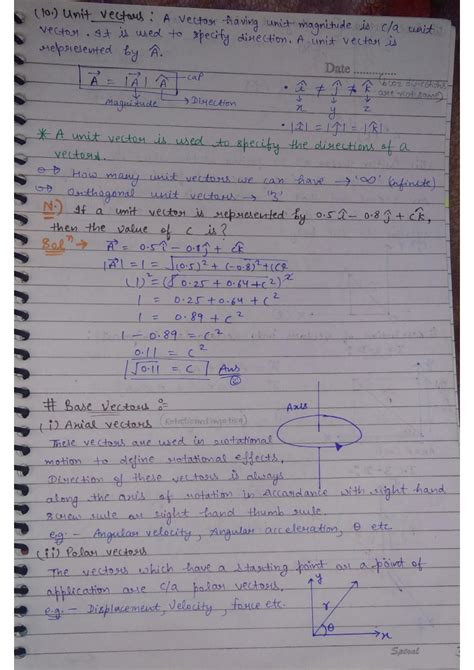 (10.) Unit vectors : A vector having unit magnitude is c/a unit
vector. It is used to specify direction. A unit vector is
represented by Â.
Date
A⃗ = |A⃗| Â cap
Magnitude Direction
î ≠ ĵ ≠ k̂
are not same
x y z
|î| = |ĵ| = |k̂|
* A unit vector is used to specify the directions of a
vectors.
How many unit vectors we can have → '∞' (infinite)
Orthogonal unit vectors → '3'
N.) If a unit vector is represented by 0.5î - 0.8ĵ + ck̂,
then the value of c is?
Solⁿ → A⃗ = 0.5î - 0.8ĵ + ck̂
|A⃗| = 1 = √(0.5)² + (-0.8)² + (c)²
(1)² = (√0.25 + 0.64 + c²)²
1 = 0.25 + 0.64 + c²
1 = 0.89 + c²
1 - 0.89 = c²
0.11 = c²
√0.11 = c Ans
# Base Vectors :
(i) Axial vectors
Axis
These vectors are used in rotational
motion to define rotational effects,
Direction of these vectors is always
along the axis of rotation in accordance with right hand
screw rule or right hand thumb rule.
e.g :- Angular velocity, Angular acceleration, θ etc
(ii) Polar vectors
The vectors which have a starting point or a point of
application are c/a polar vectors.
e.g. - Displacement, Velocity, force etc.
y
r
θ
x
Spiral